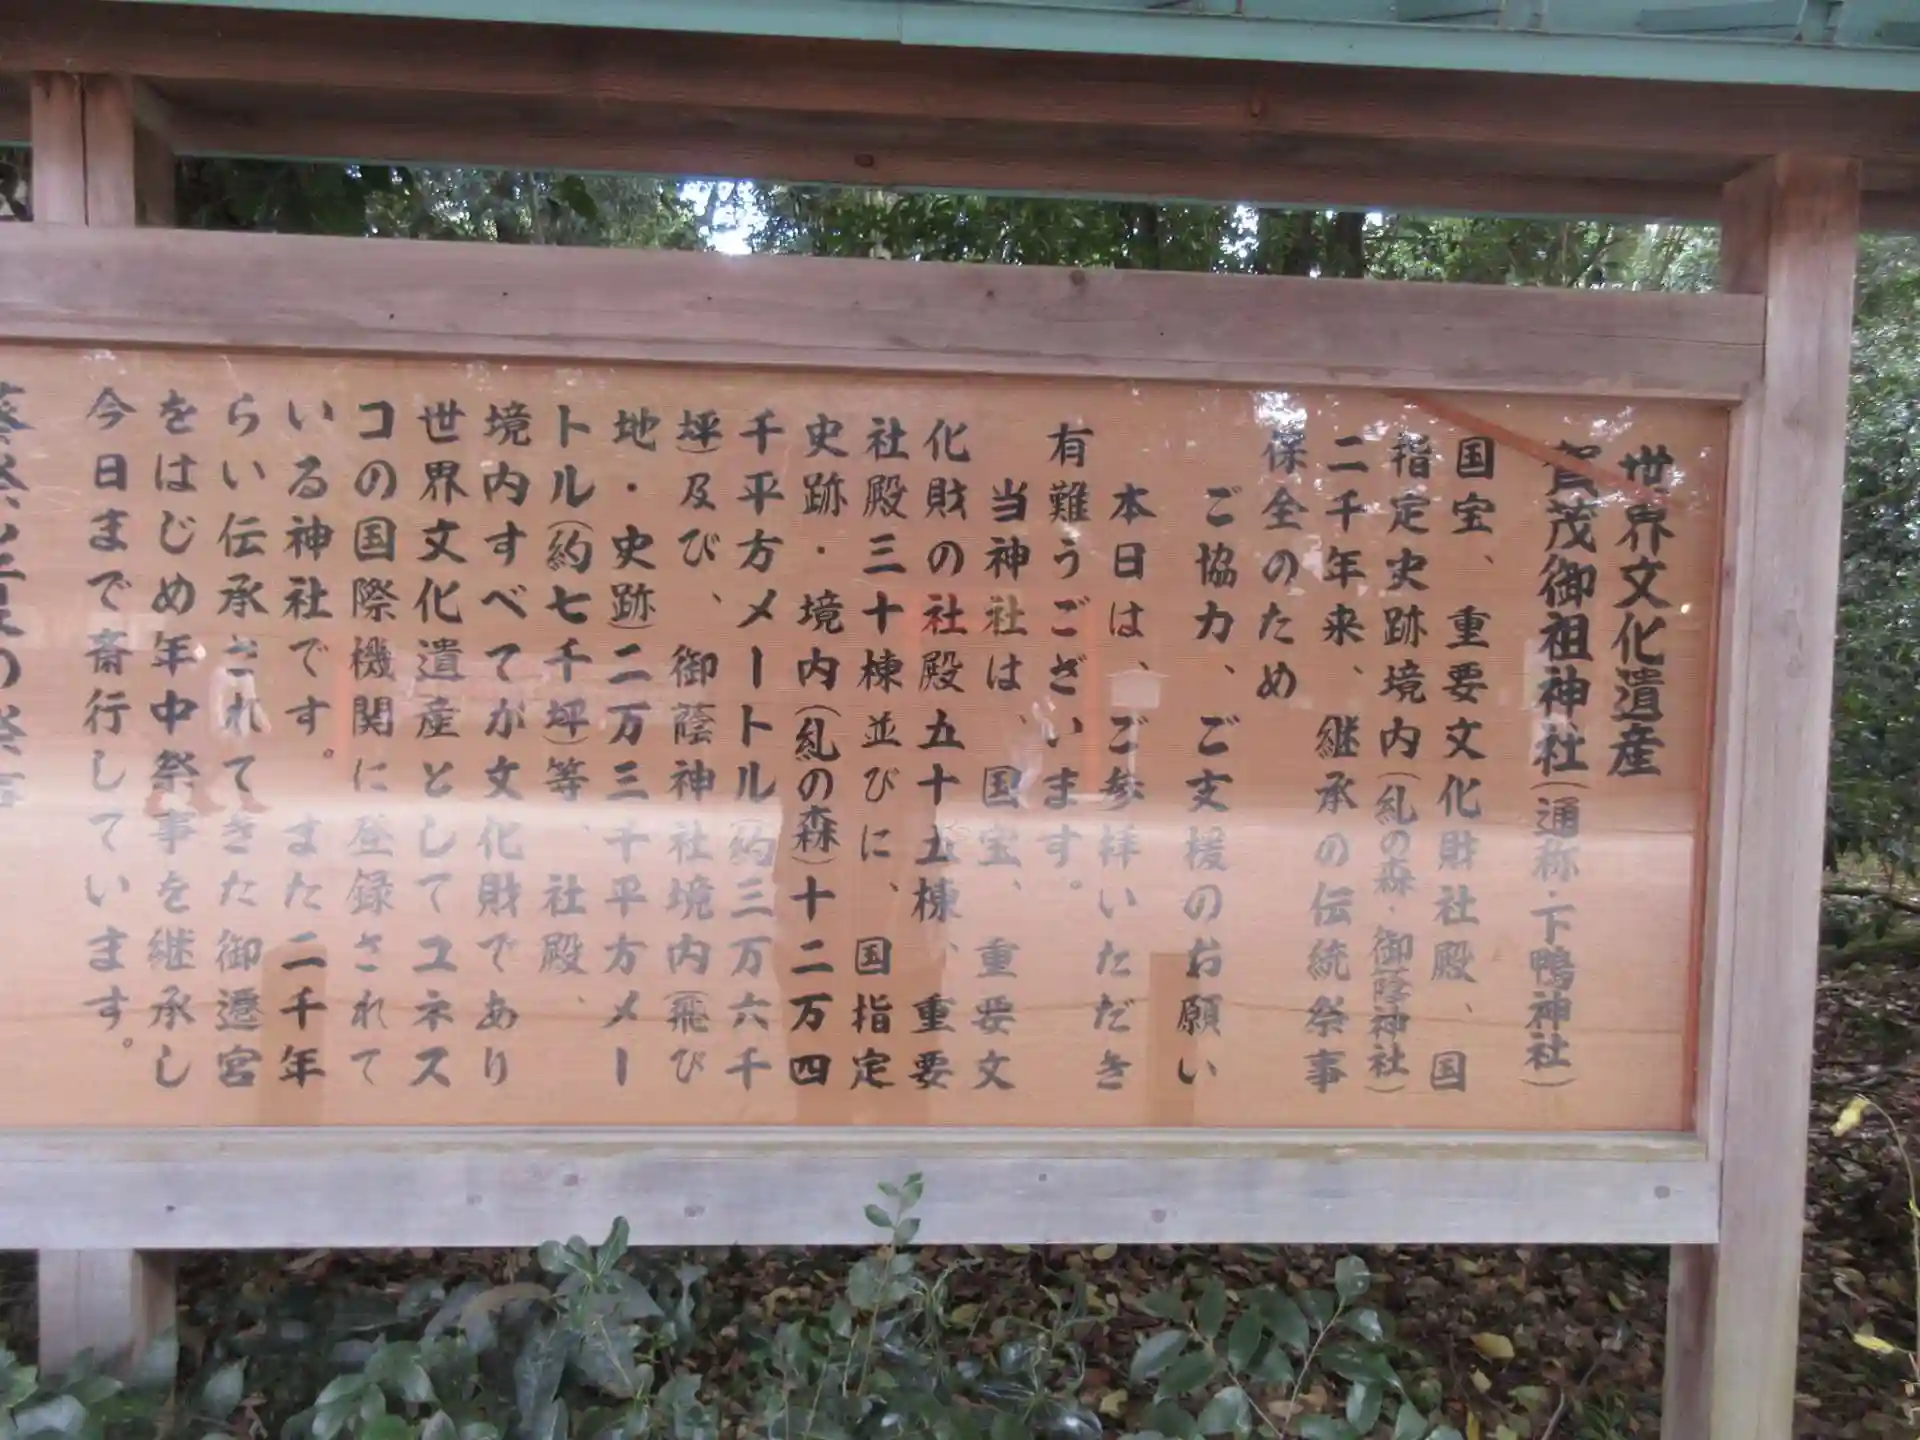 世界文化遺産
賀茂御祖神社(通称・下鴨神社)
国宝、重要文化財社殿、国
指定史跡境内(糺の森・御蔭神社)
二千年来、継承の伝統祭事
保全のため
ご協力、ご支援のお願い
本日は、ご参拝いただき
有難うございます。
当神社は、国宝、重要文
化財の社殿五十五棟、重要
社殿三十棟並びに、国指定
史跡・境内(糺の森)十二万四
千平方メートル(約三万六千
坪)及び、御蔭神社境内(飛び
地・史跡)二万三千平方メー
トル(約七千坪)等、社殿、
境内すべてが文化財であり
世界文化遺産としてユネス
コの国際機関に登録されて
いる神社です。また二千年
らい伝承されてきた御遷宮
をはじめ年中祭事を継承し
今日まで斎行しています。